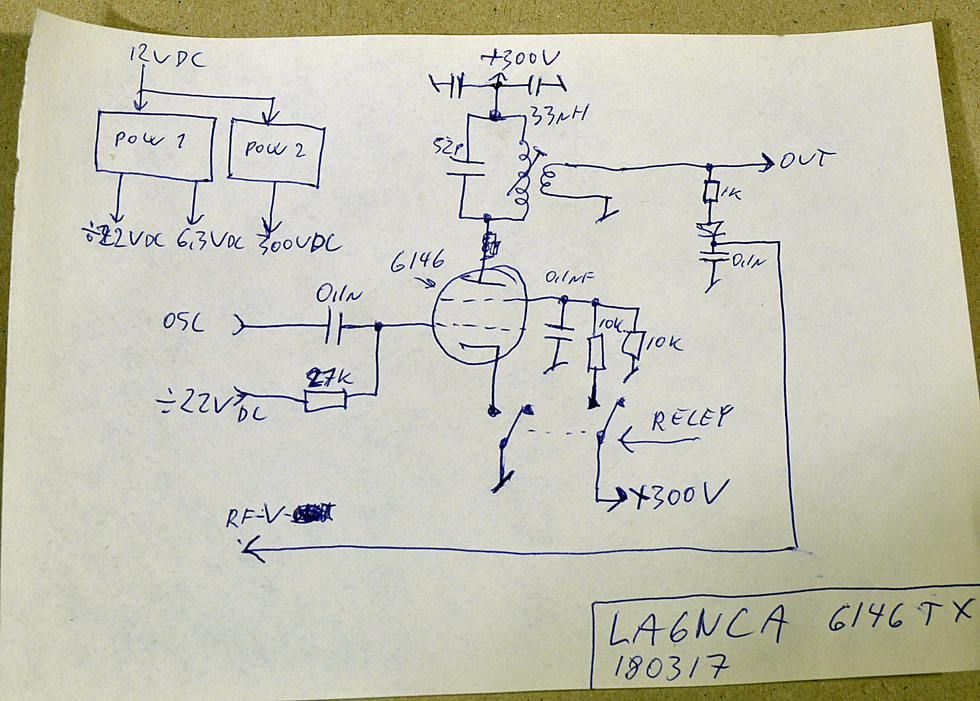 12VDC
POW 1
POW 2
÷22VDC 6,3VDC 300VDC
+300V
33nH
52P
OUT
1K
0,1N
6146
0,1NF
0,1N
OSC
10K
10K
27K
÷22V DC
RELEY
+300V
RF-V-
LA6NCA 6146 TX
180317